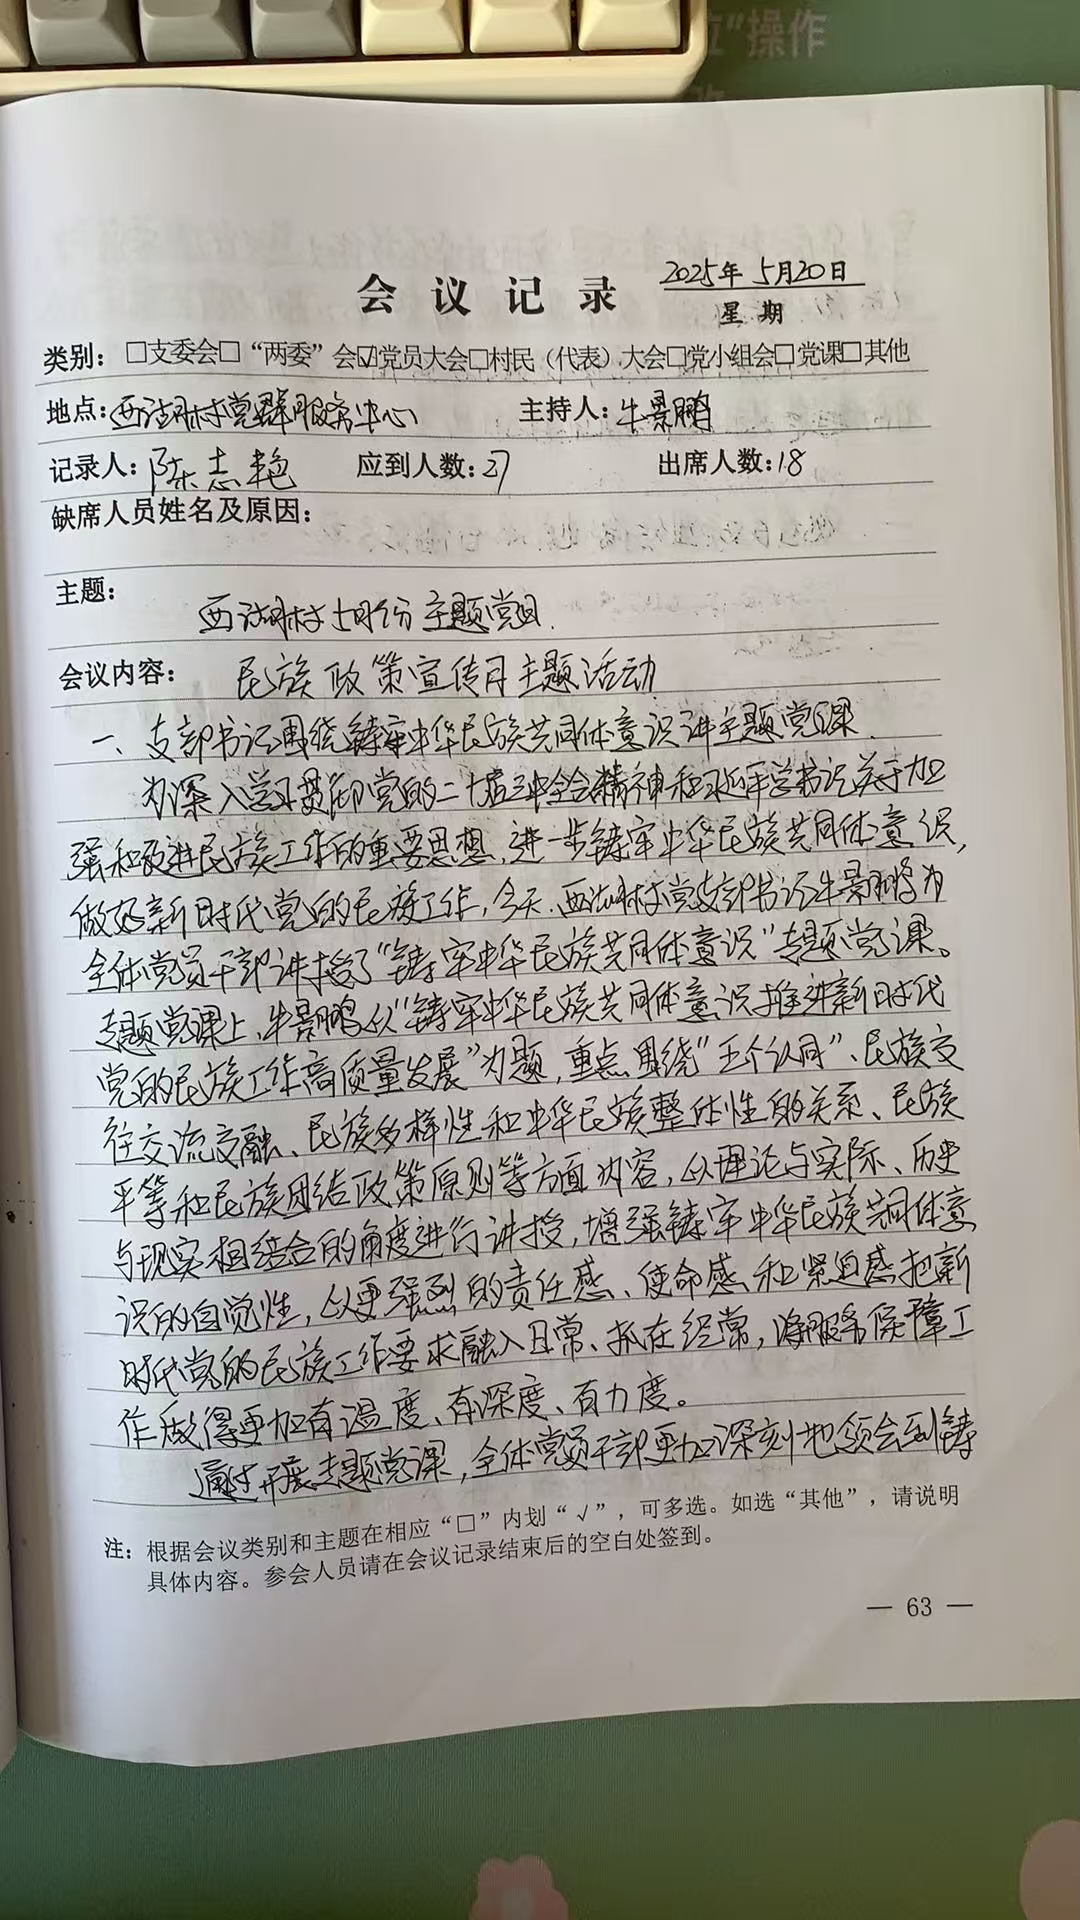 位“操作
会 议 记 录
2025年 5月20日
星 期
类别：□支委会□“两委”会☑党员大会□村民（代表）大会□党小组会□党课□其他
地点：西湖村党群服务中心 主持人：牛景鹏
记录人：陈志艳 应到人数：27 出席人数：18
缺席人员姓名及原因：
主题：
西湖村5月份主题党日.
会议内容： 民族政策宣传月主题活动
一、支部书记围绕铸牢中华民族共同体意识讲主题党课.
为深入学习贯彻党的二十届三中全会精神和习近平总书记关于加
强和改进民族工作的重要思想，进一步铸牢中华民族共同体意识，
做好新时代党的民族工作，今天，西湖村党支部书记牛景鹏为
全体党员干部讲授了“铸牢中华民族共同体意识”专题党课。
专题党课上，牛景鹏以“铸牢中华民族共同体意识推进新时代
党的民族工作高质量发展”为题，重点围绕“五个认同”、民族交
往交流交融、民族多样性和中华民族整体性的关系、民族
平等和民族团结政策原则等方面内容，从理论与实际、历史
与现实相结合的角度进行讲授，增强铸牢中华民族共同体意
识的自觉性，以更强烈的责任感、使命感和紧迫感把新
时代党的民族工作要求融入日常、抓在经常，将服务保障工
作做得更加有温度、有深度、有力度。
通过开展专题党课，全体党员干部更加深刻地领会到铸
注：根据会议类别和主题在相应“□”内划“√”，可多选。如选“其他”，请说明
具体内容。参会人员请在会议记录结束后的空白处签到。
— 63 —